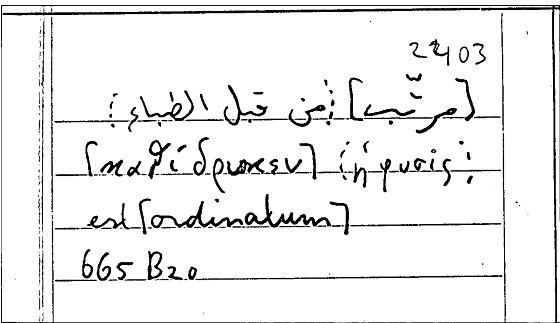 [مرتّب] ⁝من قبل الطباع⁝
[καθίδρυκεν] ⁝ἡ φύσις⁝
est [ordinatum]
665 B20